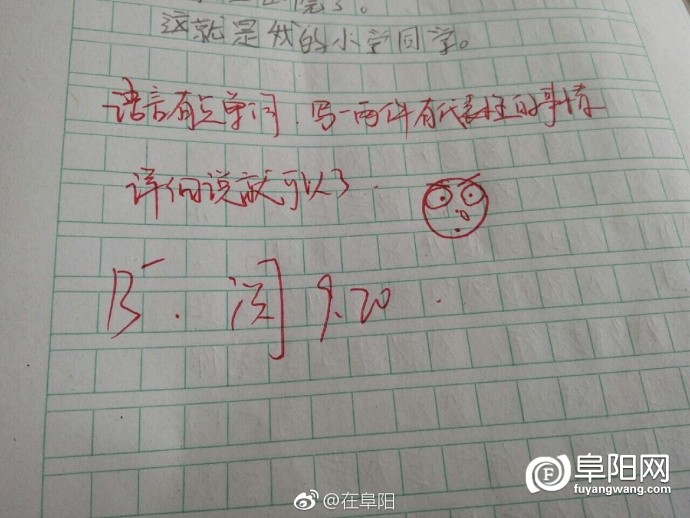 这就是我的小学同学。
语言有点单词,写一两件有代表性的事情
详细说就可以了.
B⁻. 阅 9.20.
@在阜阳
阜阳网
fuyangwang.com